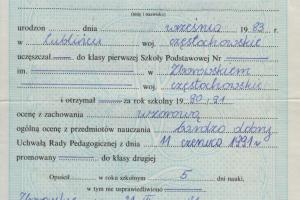 (imię i nazwisko)
urodzon dnia września 1983 r.
w Lublińcu woj. częstochowskie
uczęszczał do klasy pierwszej Szkoły Podstawowej Nr
im. w Zborowskiem
woj. częstochowskie
i otrzymał za rok szkolny 1990-91
ocenę z zachowania wzorową
ogólną ocenę z przedmiotów nauczania bardzo dobry
Uchwałą Rady Pedagogicznej z dnia 11 czerwca 1991 r
promowany do klasy drugiej
Opuścił w roku szkolnym 5 dni nauki,
w tym nie usprawiedliwiono